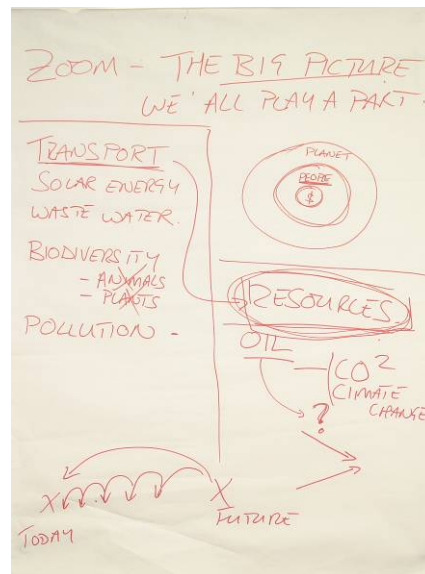 ZOOM - THE BIG PICTURE
WE' ALL PLAY A PART.
TRANSPORT
SOLAR ENERGY
WASTE WATER.
BIODIVERSITY
- ANIMALS
- PLANTS
POLLUTION -
PLANET
PEOPLE
$
RESOURCES
OIL
CO2
CLIMATE
CHANGE
?
X
TODAY
X
FUTURE